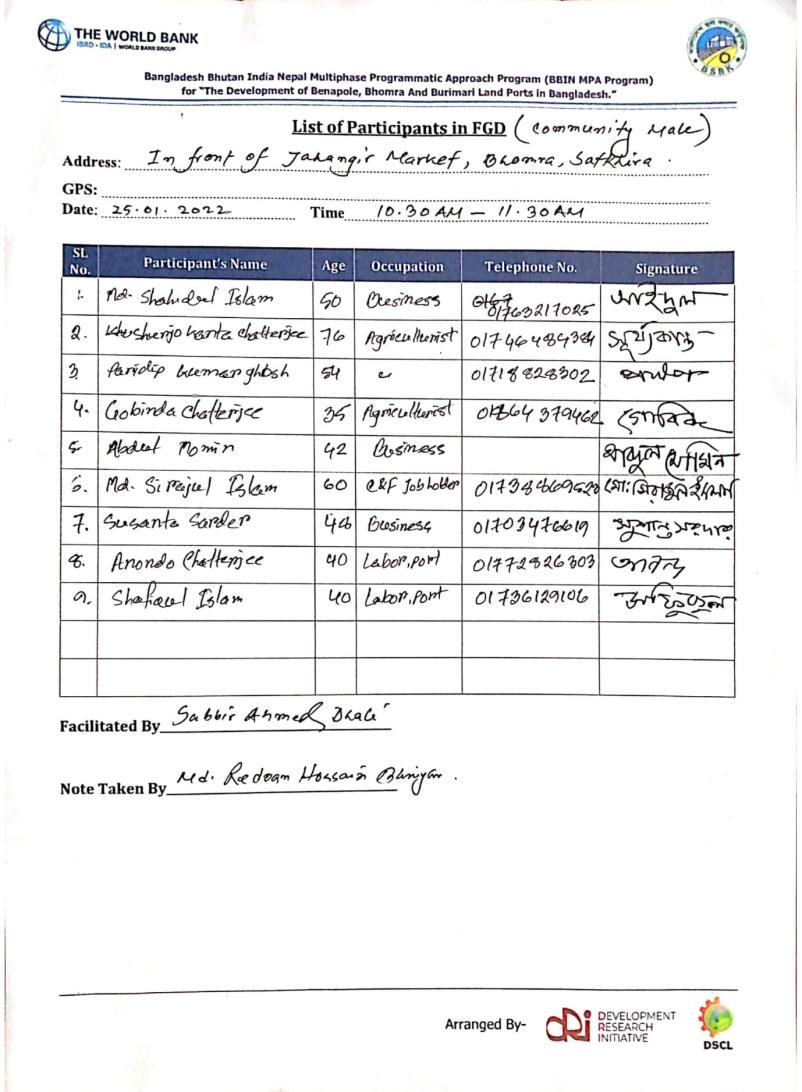 THE WORLD BANK
IBRD • IDA | WORLD BANK GROUP
BSBK
Bangladesh Bhutan India Nepal Multiphase Programmatic Approach Program (BBIN MPA Program)
for "The Development of Benapole, Bhomra And Burimari Land Ports in Bangladesh."
List of Participants in FGD (Community Male)
Address: In front of Jahangir Market, Bhomra, Satkhira.
GPS:
Date: 25.01.2022 Time 10.30 AM – 11.30 AM
SL No. Participant's Name Age Occupation Telephone No. Signature
1. Md. Shahidul Islam 50 Business 01763217025
2. Kanta Chatterjee 76 Agriculturist সূর্য্যকান্ত
3. Paridip kumar ghosh 54 " 01718828302
4. Gobinda Chatterjee 35 Agriculturist 01864 379462 গোবিন্দ
5. Abdul Momin 42 Business আব্দুল মোমিন
6. Md. Sirajul Islam 60 C&F Job holder মো: সিরাজুল ইসলাম
7. Susanta Sarder 48 Business 01703476619 সুশান্ত সরদার
8. Anondo Chatterjee 40 Labor, port 01772826303 আনন্দ
৯. Shafiqul Islam 40 Labor, Port 01736129106
Facilitated By Sabbir Ahmed Dhali
Note Taken By Md. Redoan Hossain Bhuiyan.
Arranged By- dRi DEVELOPMENT
RESEARCH
INITIATIVE
DSCL